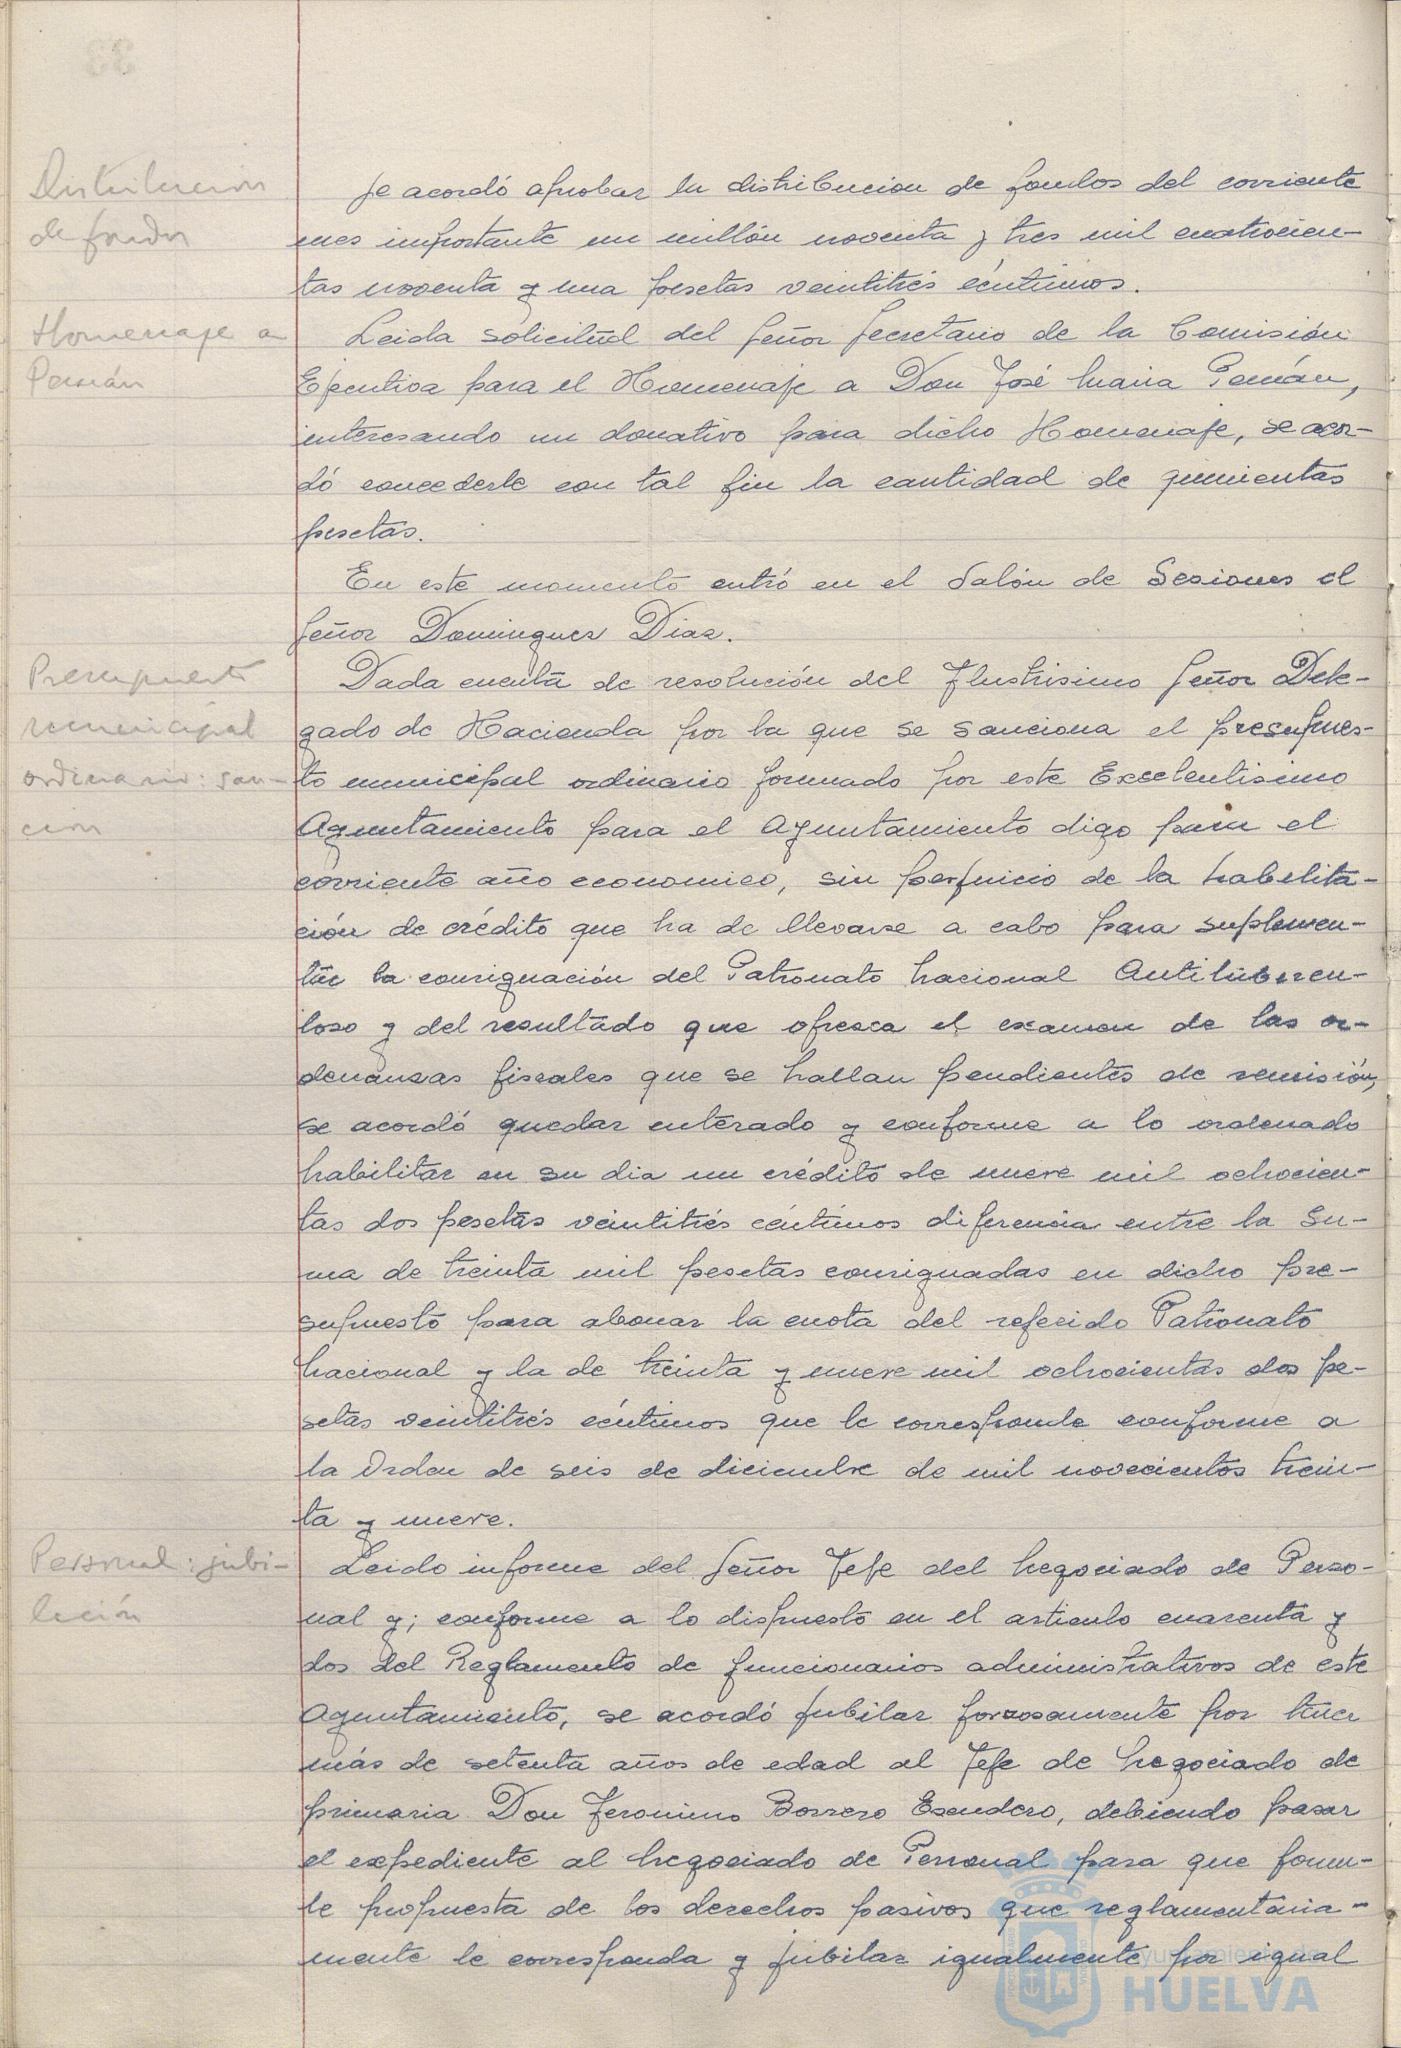 Distribucion
de fondos
Se acordó aprobar la distribucion de fondos del corriente
mes importante un millón noventa y tres mil cuatrocien-
tas noventa y una pesetas veintitrés céntimos.
Homenaje a
Pemán
Leida solicitud del Señor Secretario de la Comisión
Ejecutiva para el Homenaje a Don José Maria Pemán,
interesando un donativo para dicho Homenaje, se acor-
dó concederle con tal fin la cantidad de quinientas
pesetas.
En este momento entró en el Salón de Sesiones el
Señor Dominguez Diaz.
Presupuesto
municipal
ordinario: san-
cion
Dada cuenta de resolución del Ilustrisimo Señor Dele-
gado de Hacienda por la que se sanciona el presupues-
to municipal ordinario formado por este Excelentisimo
Ayuntamiento para el Ayuntamiento digo para el
corriente año economico, sin perjuicio de la habilita-
ción de crédito que ha de llevarse a cabo para suplemen-
tar la consignación del Patronato Nacional Antitubercu-
loso y del resultado que ofresca el examen de las or-
denanzas fiscales que se hallan pendientes de remisión,
se acordó quedar enterado y conforme a lo ordenado
habilitar en su dia un crédito de nueve mil ochocien-
tas dos pesetas veintitrés céntimos diferencia entre la su-
ma de treinta mil pesetas consignadas en dicho pre-
supuesto para abonar la cuota del referido Patronato
Nacional y la de treinta y nueve mil ochocientas dos pe-
setas veintitrés céntimos que le corresponde conforme a
la Orden de seis de diciembre de mil novecientos trein-
ta y nueve.
Personal: jubi-
lación
Leido informe del Señor Jefe del Negociado de Perso-
nal y; conforme a lo dispuesto en el articulo cuarenta y
dos del Reglamento de funcionarios administrativos de este
Ayuntamiento, se acordó jubilar forzosamente por tener
más de setenta años de edad al Jefe de Negociado de
primaria Don Jeronimo Borrero Escudero, debiendo pasar
el expediente al Negociado de Personal para que formu-
le propuesta de los derechos pasivos que reglamentaria-
mente le corresponda y jubilar igualmente por igual
Ayuntamiento de
HUELVA